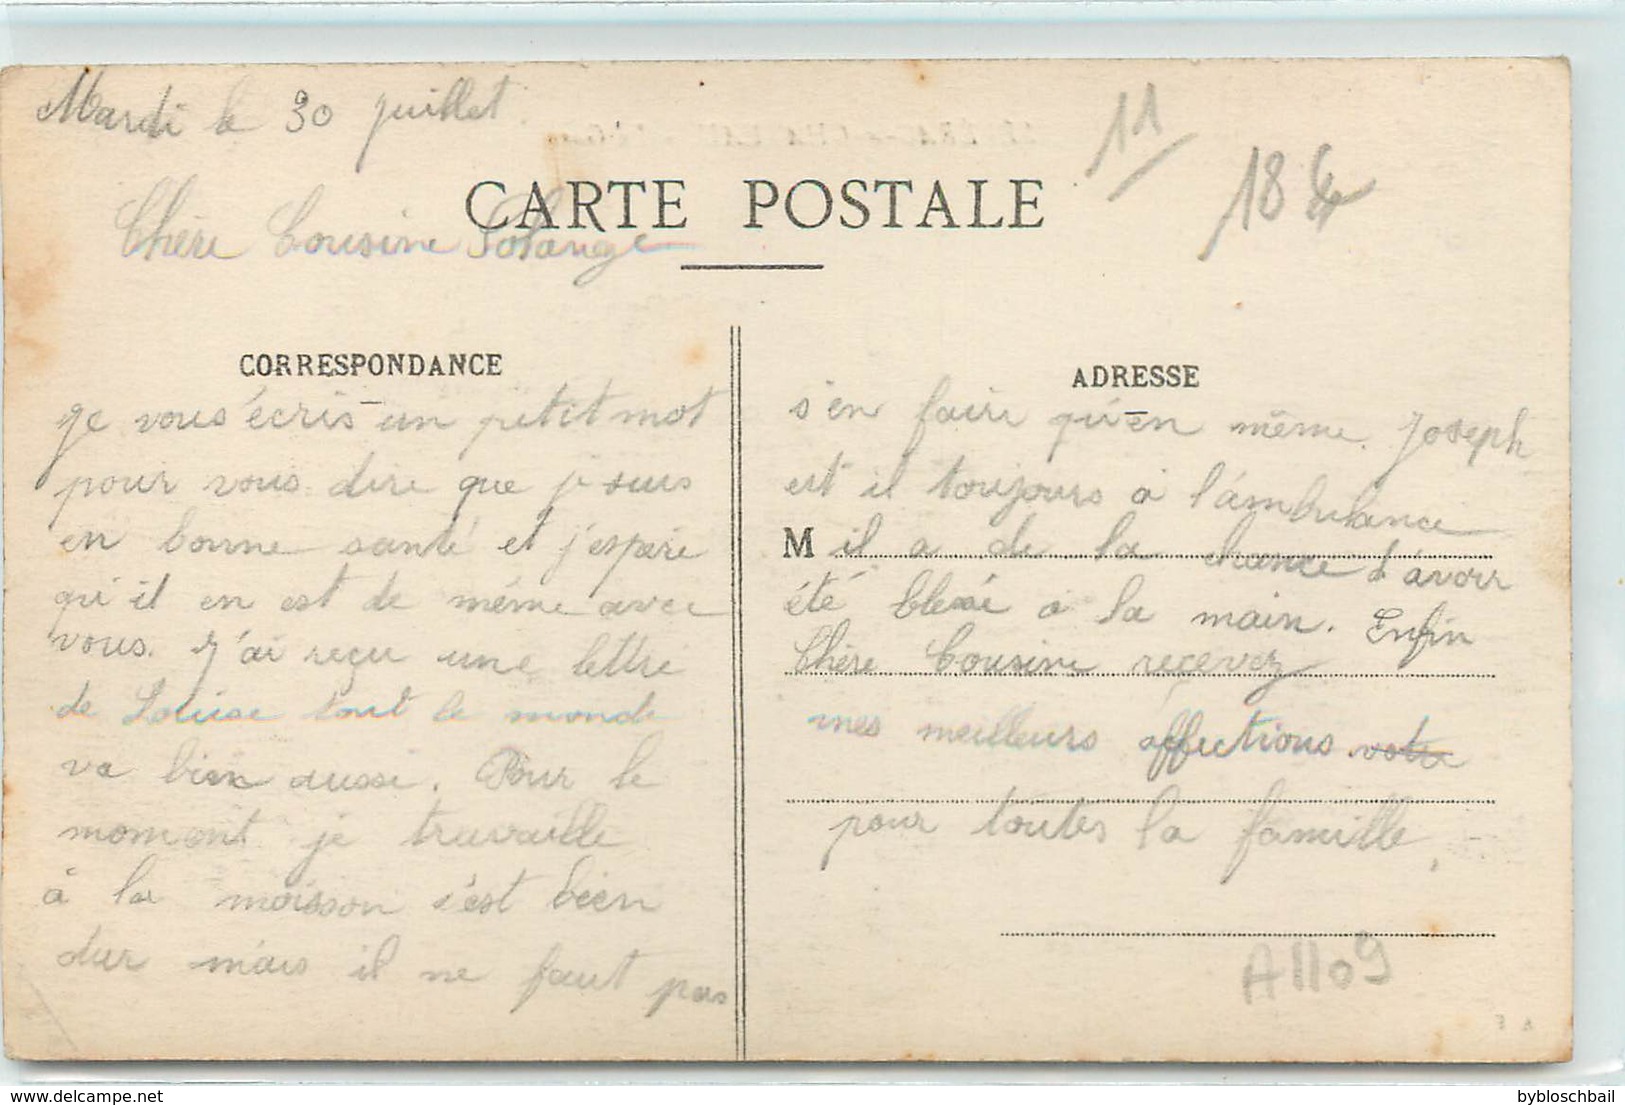 Mardi le 30 juillet
11
18 €
CARTE POSTALE
Chère Cousine Solange
CORRESPONDANCE
ADRESSE
je vous écris un petit mot
pour vous dire que je suis
en bonne santé et j'espère
qu'il en est de même avec
vous. J'ai reçu une lettre
de Louise tout le monde
va bien aussi. Pour le
moment je travaille
à la moisson s'est bien
dur mais il ne faut pas
s'en faire qu'en même. Joseph
est il toujours a l'ambulance
M il a de la chance d'avoir
été blessé a la main. Enfin
Chère Cousine recevez
mes meilleurs affections votre
pour toutes la famille.
A1109
delcampe.net
bybloschbail